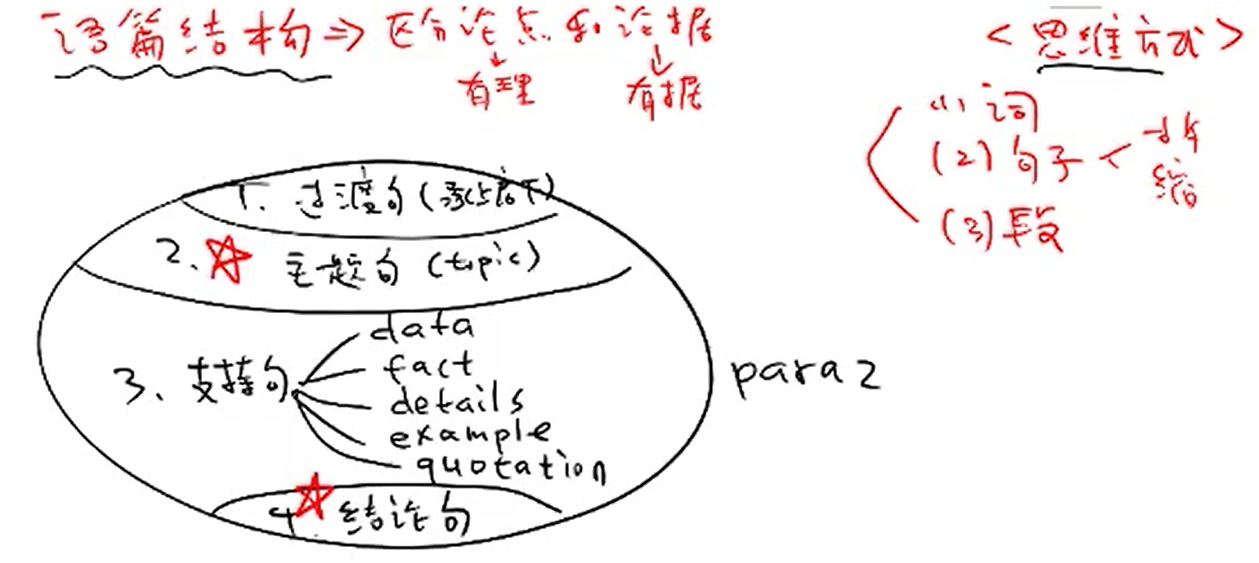 语篇结构⇒区分论点和论据
↓ ↓
有理 有据
<思维方式>
(1) 词
(2) 句子 <
缩
(3) 段
1. 过渡句(承上启下)
2. ☆ 主题句 (topic)
3、支持句
data
fact
details
example
quotation
4. ☆ 结论句
para 2